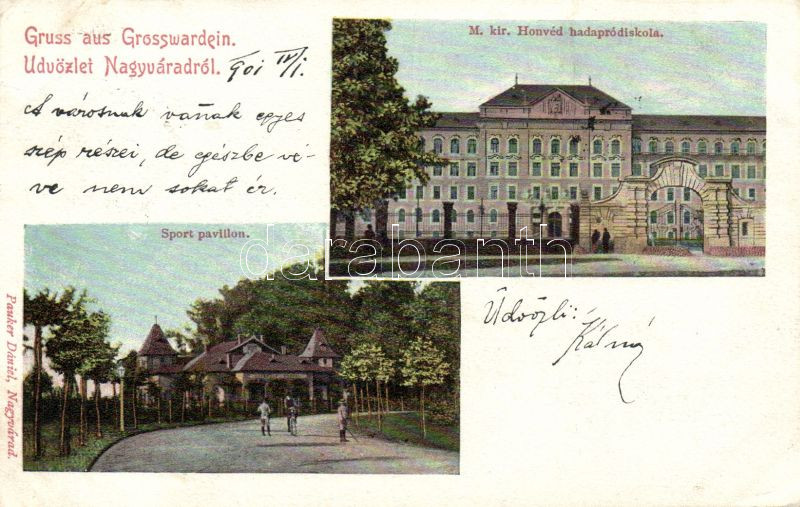 Gruss aus Grosswardein.
Udvözlet Nagyváradról.
901 IV/1.
A városnak vannak egyes
szép részei, de egészbe vé-
ve nem sokat ér.
M. kir. Honvéd hadapródiskola.
Sport pavillon.
darabanth
Üdvözli:
Kálmán
Pauker Dániel, Nagyvárad.